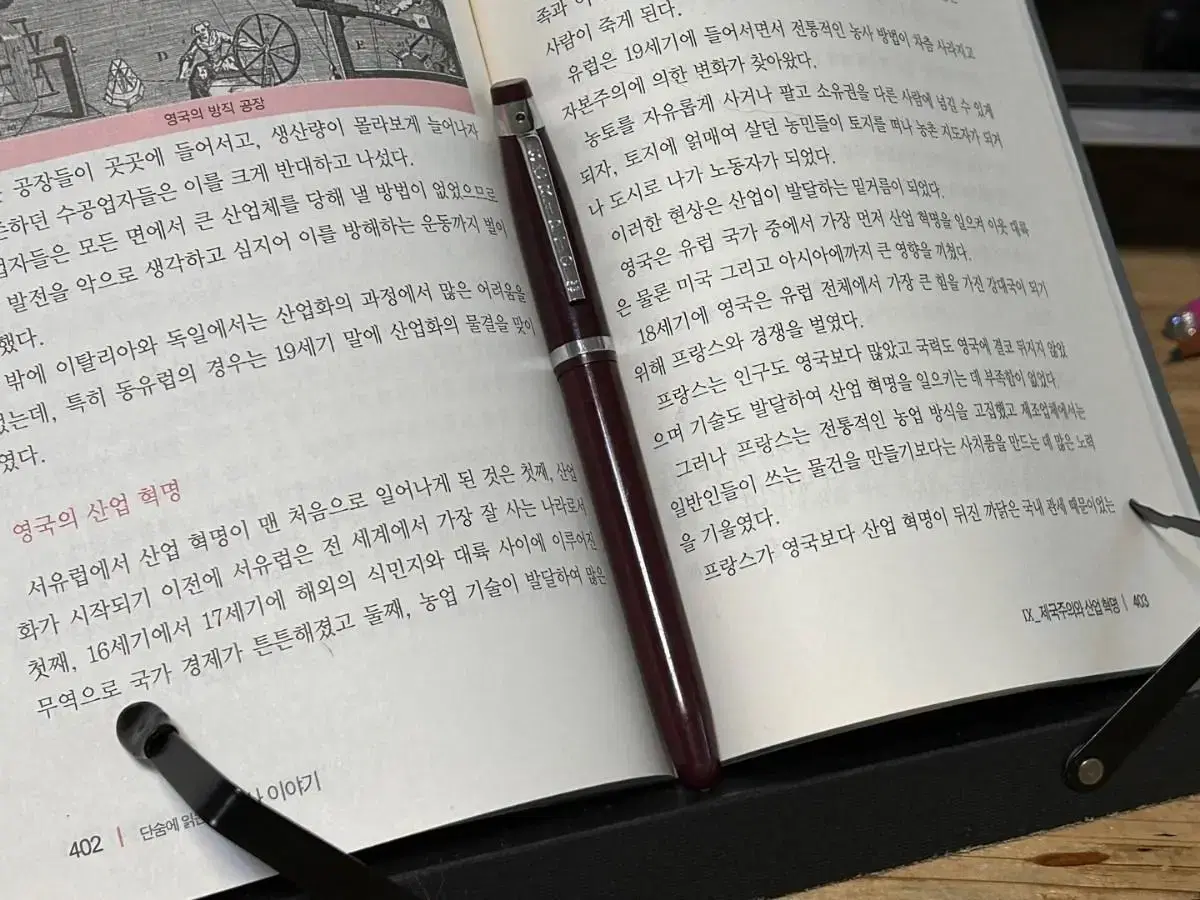 D
영국의 방직 공장
공장들이 곳곳에 들어서고, 생산량이 몰라보게 늘어나자
하던 수공업자들은 이를 크게 반대하고 나섰다.
업자들은 모든 면에서 큰 산업체를 당해 낼 방법이 없었으므로
발전을 악으로 생각하고 심지어 이를 방해하는 운동까지 벌이
했다.
밖에 이탈리아와 독일에서는 산업화의 과정에서 많은 어려움을
었는데, 특히 동유럽의 경우는 19세기 말에 산업화의 물결을 맞이
였다.
영국의 산업 혁명
서유럽에서 산업 혁명이 맨 처음으로 일어나게 된 것은 첫째, 산업
화가 시작되기 이전에 서유럽은 전 세계에서 가장 잘 사는 나라로서
첫째, 16세기에서 17세기에 해외의 식민지와 대륙 사이에 이루어진
무역으로 국가 경제가 튼튼해졌고 둘째, 농업 기술이 발달하여 많은
402 | 단숨에 읽는 이야기
족과
사람이 죽게 된다.
유럽은 19세기에 들어서면서 전통적인 농사 방법이 차츰 사라지고
자본주의에 의한 변화가 찾아왔다.
농토를 자유롭게 사거나 팔고 소유권을 다른 사람에 넘길 수 있게
되자, 토지에 얽매여 살던 농민들이 토지를 떠나 농촌 지도자가 되거
나 도시로 나가 노동자가 되었다.
이러한 현상은 산업이 발달하는 밑거름이 되었다.
영국은 유럽 국가 중에서 가장 먼저 산업 혁명을 일으켜 이웃 대륙
은 물론 미국 그리고 아시아에까지 큰 영향을 끼쳤다.
18세기에 영국은 유럽 전체에서 가장 큰 힘을 가진 강대국이 되기
위해 프랑스와 경쟁을 벌였다.
프랑스는 인구도 영국보다 많았고 국력도 영국에 결코 뒤지지 않았
으며 기술도 발달하여 산업 혁명을 일으키는 데 부족함이 없었다.
그러나 프랑스는 전통적인 농업 방식을 고집했고 제조업체에서는
일반인들이 쓰는 물건을 만들기보다는 사치품을 만드는 데 많은 노력
을 기울였다.
프랑스가 영국보다 산업 혁명이 뒤진 까닭은 국내 관세 때문이었는
IX_제국주의와 산업 혁명 | 403